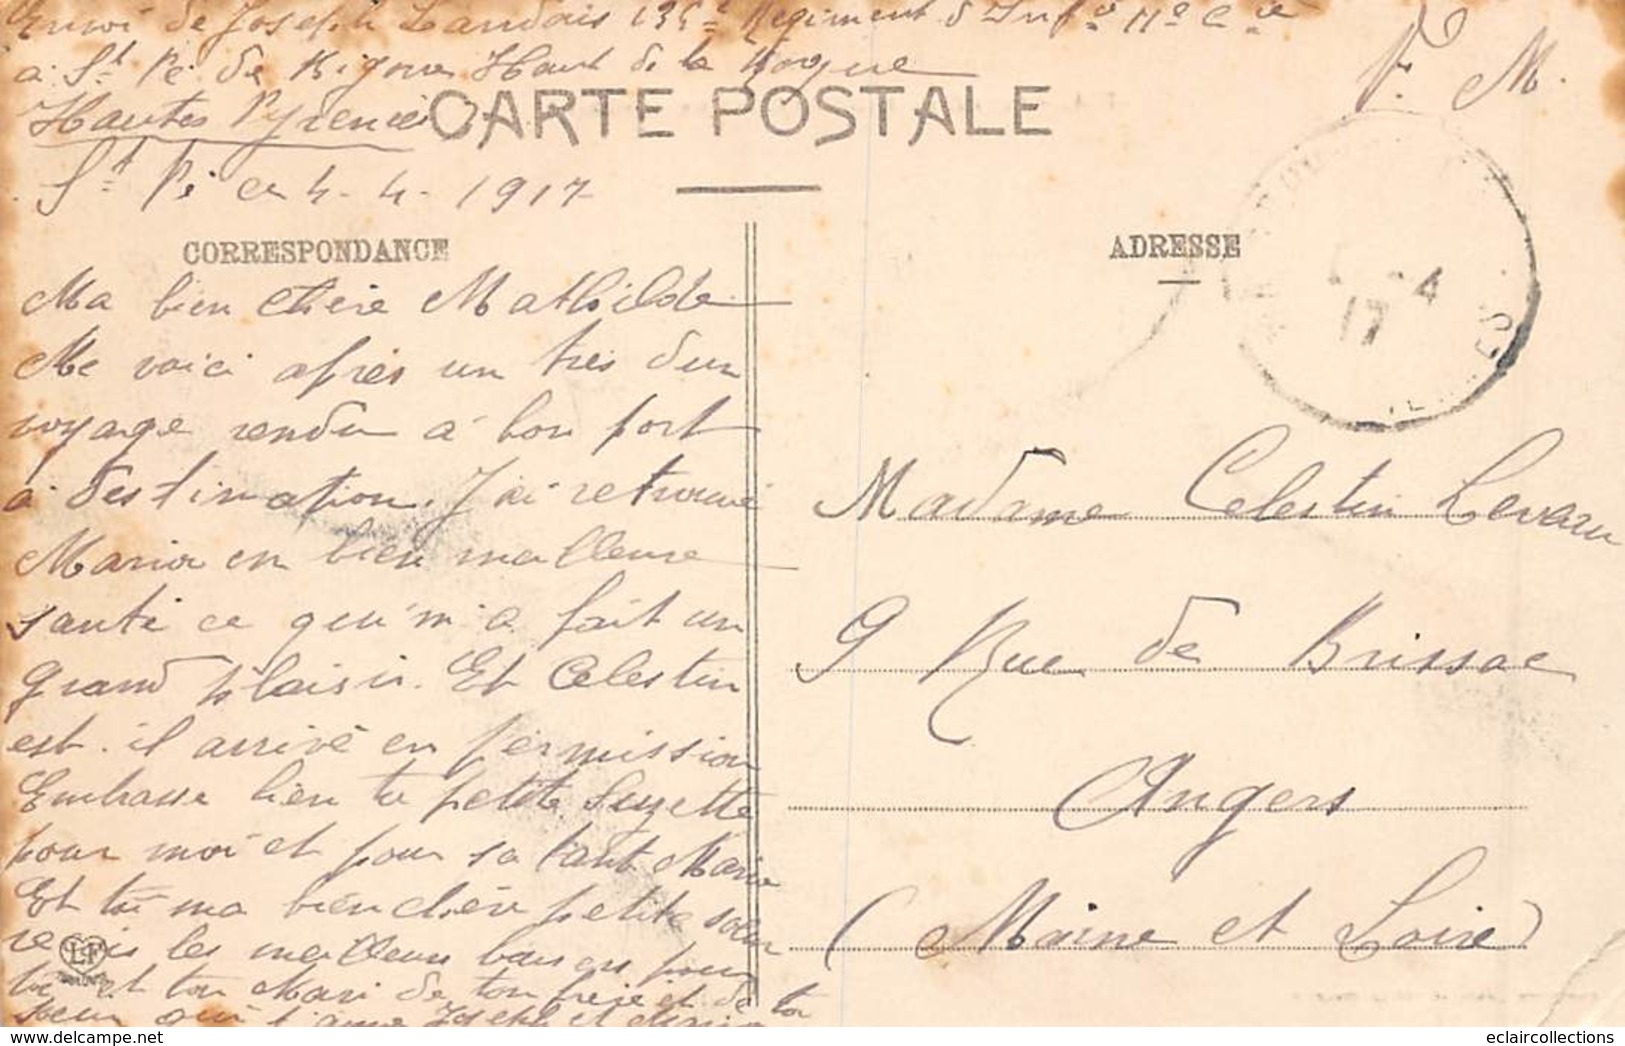 Envoi de Joseph Landais 135e Regiment d'Infie 11e Cie
à St Pé de Bigorre Haut de la
Hautes Pyrenées
F. M.
CARTE POSTALE
St Pé ce 4-4-1917
CORRESPONDANCE
Ma bien chère Mathilde
Me voici après un très dur
voyage rendu à bon port
à destination. J'ai retrouvé
Maria en bien meilleure
santé ce qui m'a fait un
grand plaisir. Et Celestin
est-il arrivé en permission
Embrasse bien ta petite Suzette
pour moi et pour sa tante Maria
Et toi ma bien chère petite sœur
les meilleurs baisers pour
toi et ton Mari de ton frère et de ta
sœur qui t'aime Joseph et Maria
LF
ADRESSE
4
17
Madame Celestin Levazu
9 Rue de Brissac
Angers
(Maine et Loire)
eclaircollections